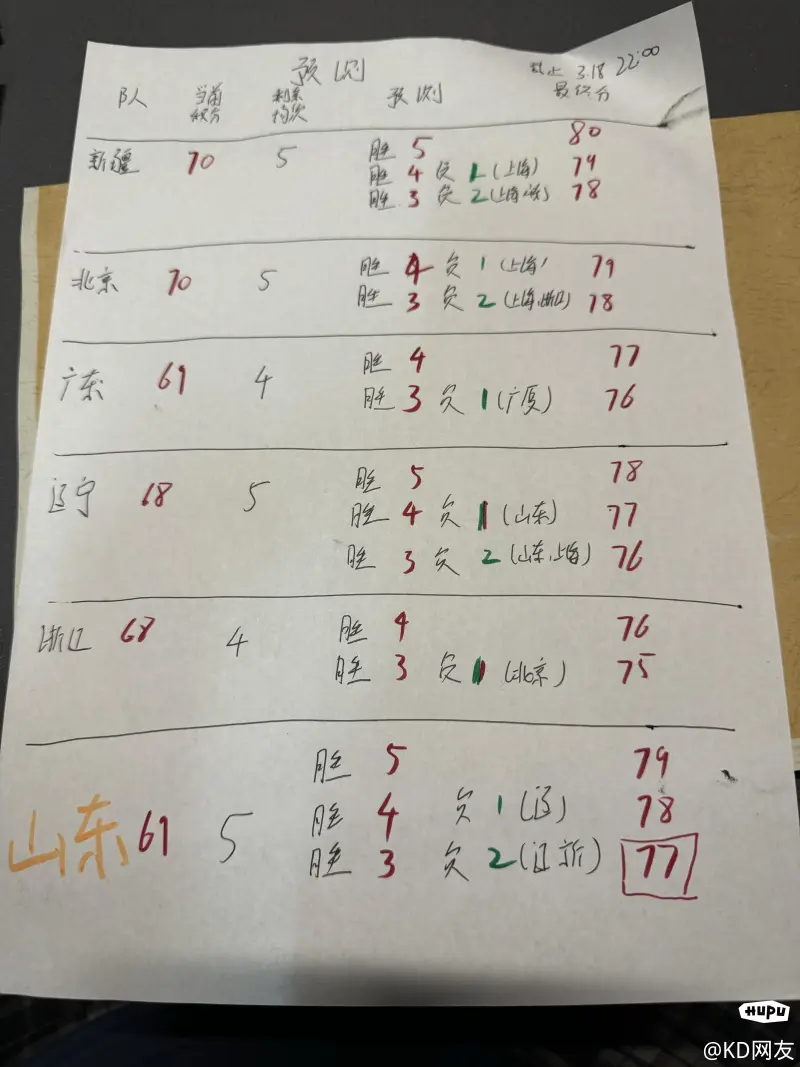 预测
截止 3.18 22:00
队人 当前积分 剩余场次 预测 最终分
新疆 70 5 胜 5 80
胜 4 负 1 (上海) 79
胜 3 负 2 (上海 ) 78
北京 70 5 胜 4 负 1 (上海) 79
胜 3 负 2 (上海,浙江) 78
广东 69 4 胜 4 77
胜 3 负 1 (广厦) 76
辽宁 68 5 胜 5 78
胜 4 负 1 (山东) 77
胜 3 负 2 (山东,上海) 76
浙江 68 4 胜 4 76
胜 3 负 1 (北京) 75
山东 69 5 胜 5 79
胜 4 负 1 (辽) 78
胜 3 负 2 (辽 新) 77
HUPU
@KD网友